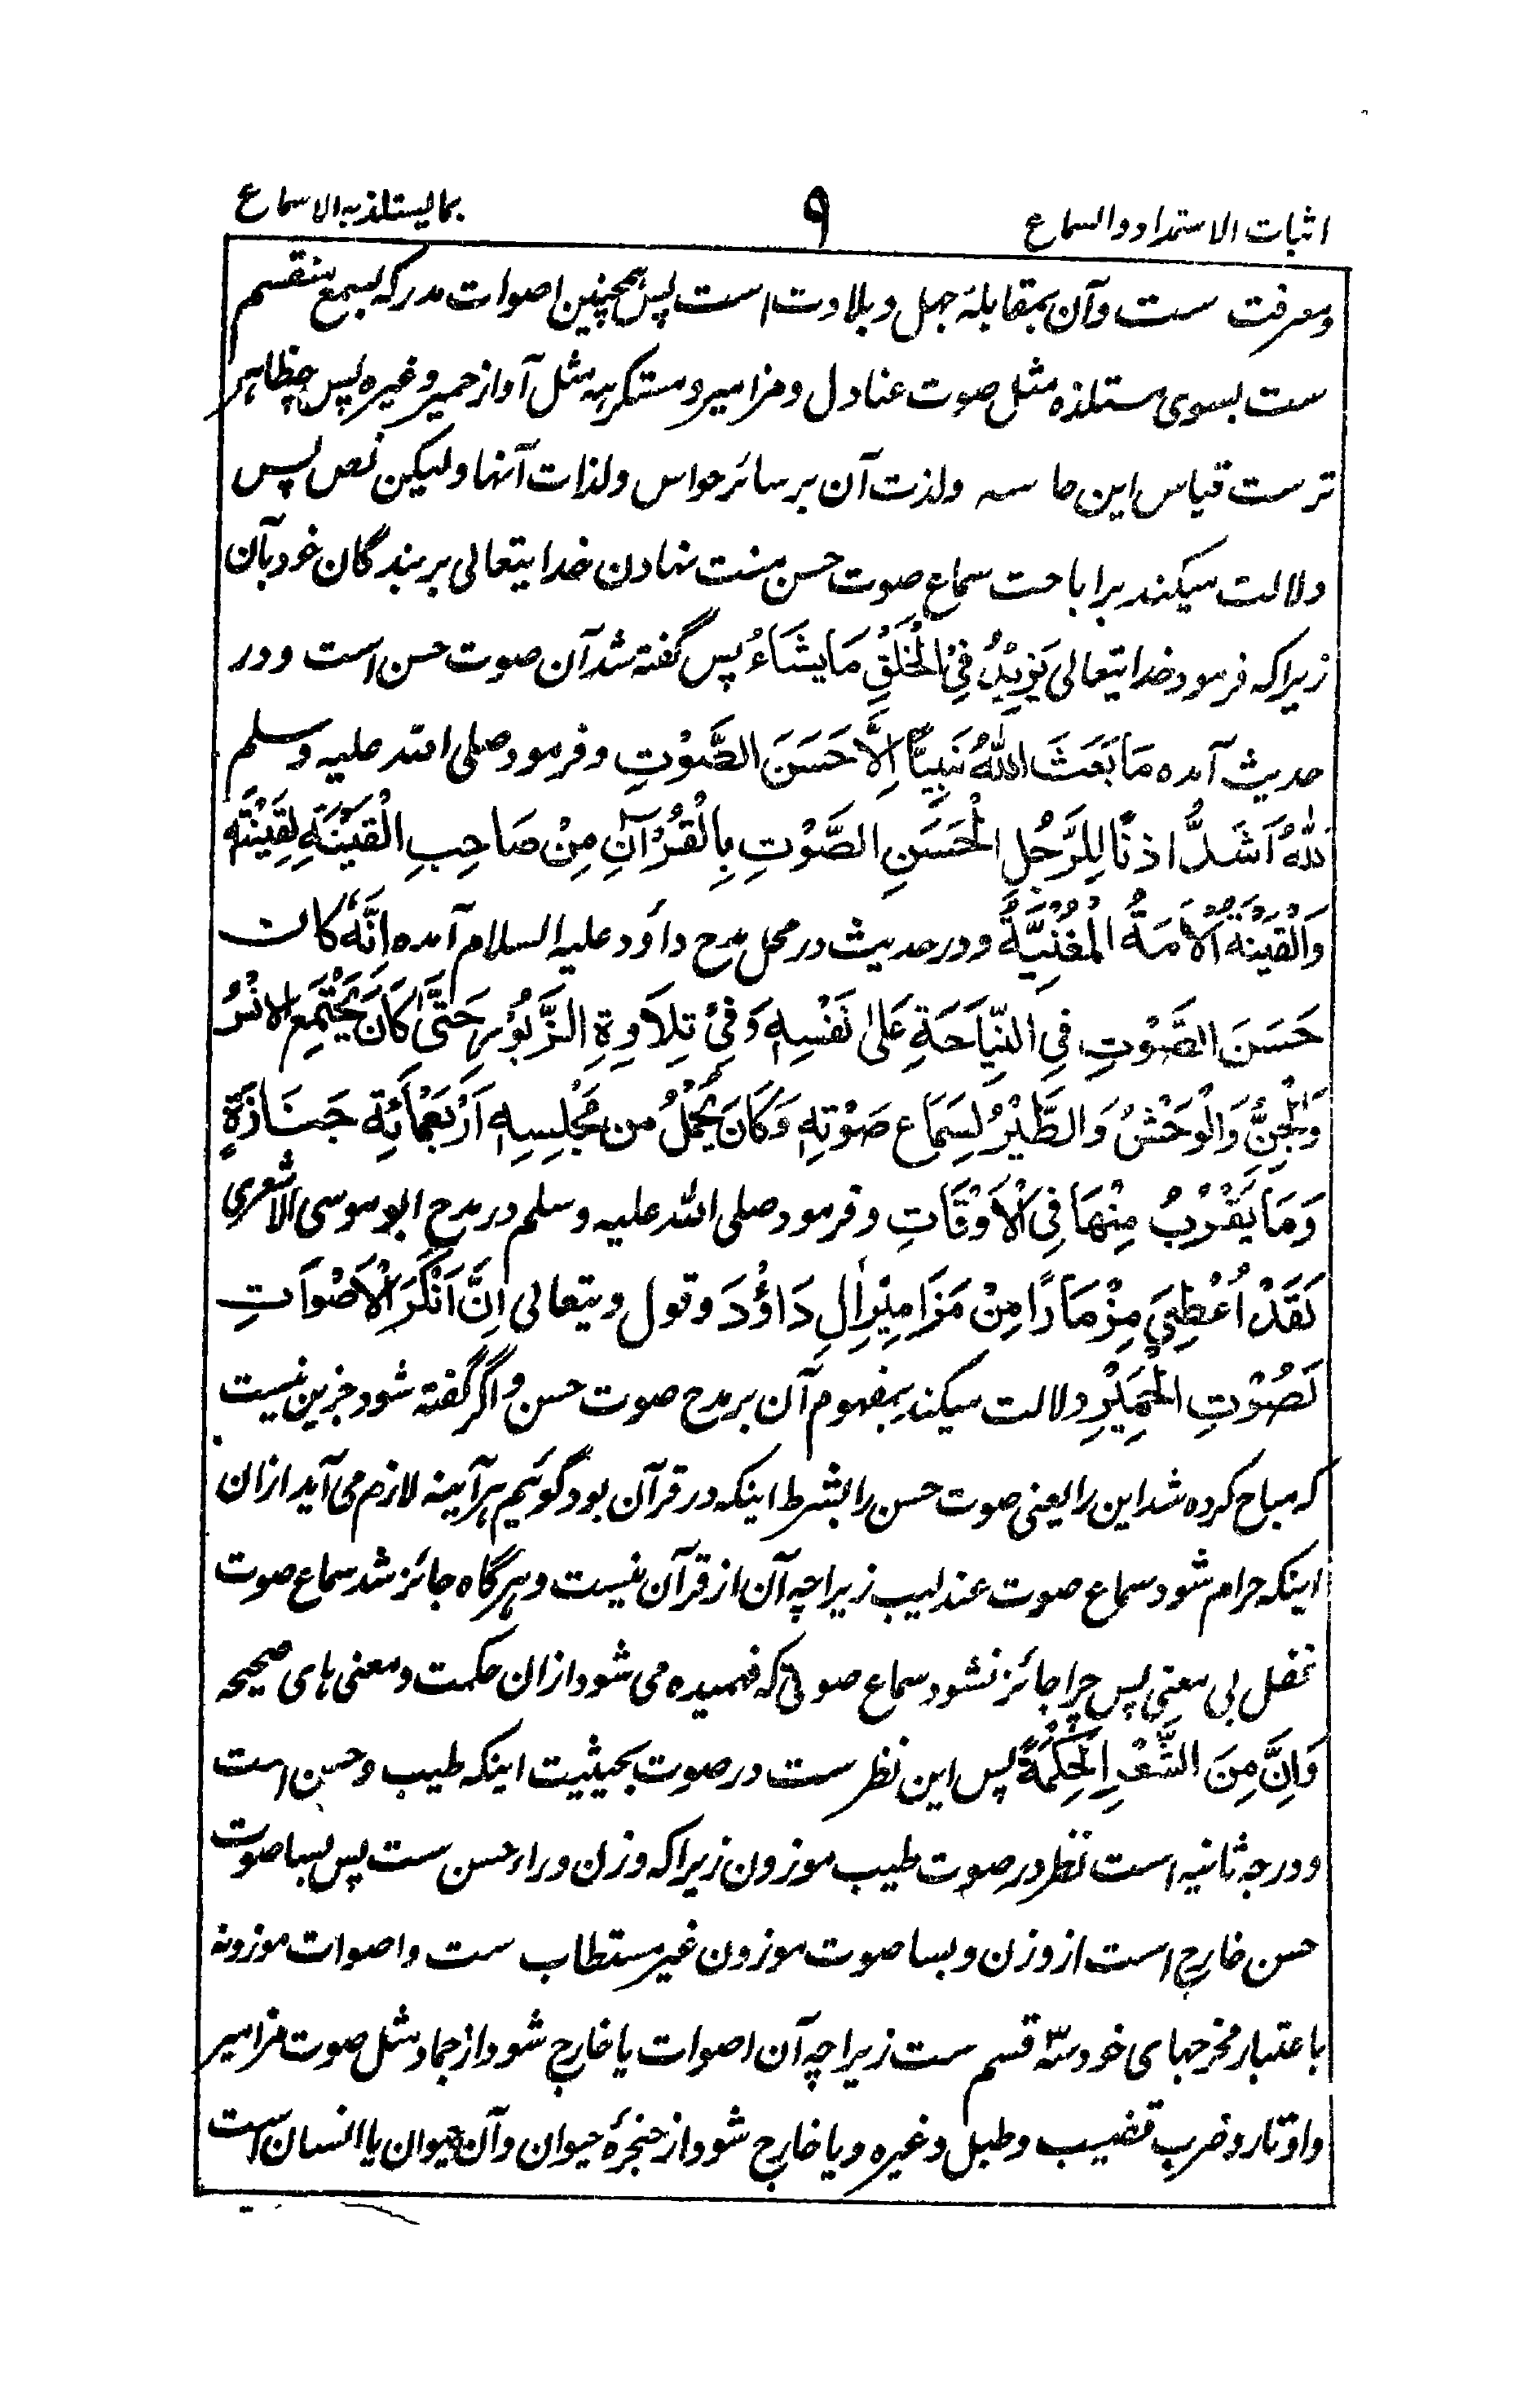 اثبات الاستمداد والسماع ۹ بما یستلذ به الاسماع
ومعرفت ست وآن بمقابلهٔ جهل وبلادت است پس همچنین اصوات مدرکه بسمع منقسم
ست بسوی مستلذه مثل صوت عنادل ومزامیر ومستکرهه مثل آواز حمیر وغیره پس چه ظاهر
ترست قیاس این حاسه ولذت آن بر سائر حواس ولذات آنها ولیکن نص پس
دلالت میکند بر اباحت سماع صوت حسن منت نهادن خدایتعالی بر بندگان خود بآن
زیراکه فرمود خدایتعالی یَزِیْدُ فِی الْخَلْقِ مَا یَشَاءُ پس گفته شد آن صوت حسن است ودر
حدیث آمده مَا بَعَثَ اللّٰهُ نَبِیًّا اِلَّا حَسَنَ الصَّوْتِ وفرمود صلی الله علیه وسلم
لَلّٰهُ اَشَدُّ اذنًا لِلرَّجُلِ الْحَسَنِ الصَّوْتِ بِالْقُرْآنِ مِنْ صَاحِبِ الْقَیْنَةِ لِقَیْنَتِهٖ
وَالْقَیْنَةُ الْاَمَةُ الْمُغَنِّیَّةُ ودر حدیث در محل مدح داؤد علیه السلام آمده اِنَّهٗ کَانَ
حَسَنَ الصَّوْتِ فِی النِّیَاحَةِ عَلٰی نَفْسِهٖ وَفِیْ تِلَاوَةِ الزَّبُوْرِ حَتّٰی کَانَ یَجْتَمِعُ الْاِنْسُ
وَالْجِنُّ وَالْوَحْشُ وَالطَّیْرُ لِسَمَاعِ صَوْتِهٖ وَکَانَ یُحْمَلُ مِن مَجْلِسِهٖ اَرْبَعُمِائَة جَنَازَةٍ
وَمَا یَقْرُبُ مِنْهَا فِی الْاَوْقَاتِ وفرمود صلی الله علیه وسلم در مدح ابو موسی الاشعری
لَقَدْ اُعْطِیَ مِزْمَارًا مِنْ مَزَامِیْرِ اٰلِ دَاوٗدَ وقول ویتعالی اِنَّ اَنْکَرَ الْاَصْوَاتِ
لَصَوْتِ الْحَمِیْرِ دلالت میکند بمفهوم آن بر مدح صوت حسن واگر گفته شود جزین نیست
که مباح کرده شد این را یعنی صوت حسن را بشرط اینکه در قرآن بود گوئیم هرآینه لازم می آید ازان
اینکه حرام شود سماع صوت عندلیب زیراچه آن از قرآن نیست وهرگاه جائز شد سماع صوت
غفل بی معنی پس چرا جائز نشود سماع صوتی که فهمیده می شود ازان حکمت ومعنی های صحیحه
وَاِنَّ مِنَ الشِّعْرِ لَحِکْمَةً پس این نظر ست در صوت بحیثیت اینکه طیب وحسن است
ودرجه ثانیه است نظر در صوت طیب موزون زیراکه وزن وراء حسن ست پس بسا صوت
حسن خارج است از وزن وبسا صوت موزون غیر مستطاب ست واصوات موزونه
باعتبار مخرجهای خود سه قسم ست زیراچه آن اصوات یا خارج شود از جماد مثل صوت مزامیر
واوتار وضرب قضیب وطبل وغیره ویا خارج شود از حنجرهٔ حیوان وآن حیوان یا انسان است